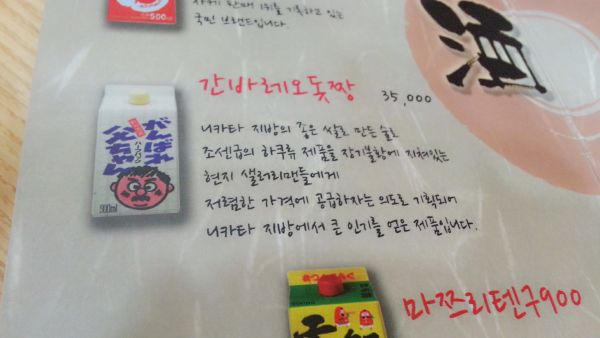 500
사케 판매 1위를 기록하고 있는
국민 브랜드입니다.
酒
간바레오돗짱 35,000
がんばれ
父ちゃん
900ml
니카타 지방의 좋은 쌀로 만든 술로
조센급의 하쿠류 제품을 장기불황에 지쳐있는
현지 샐러리맨들에게
저렴한 가격에 공급하자는 의도로 기획되어
니카타 지방에서 큰 인기를 얻은 제품입니다.
마쯔리텐구900